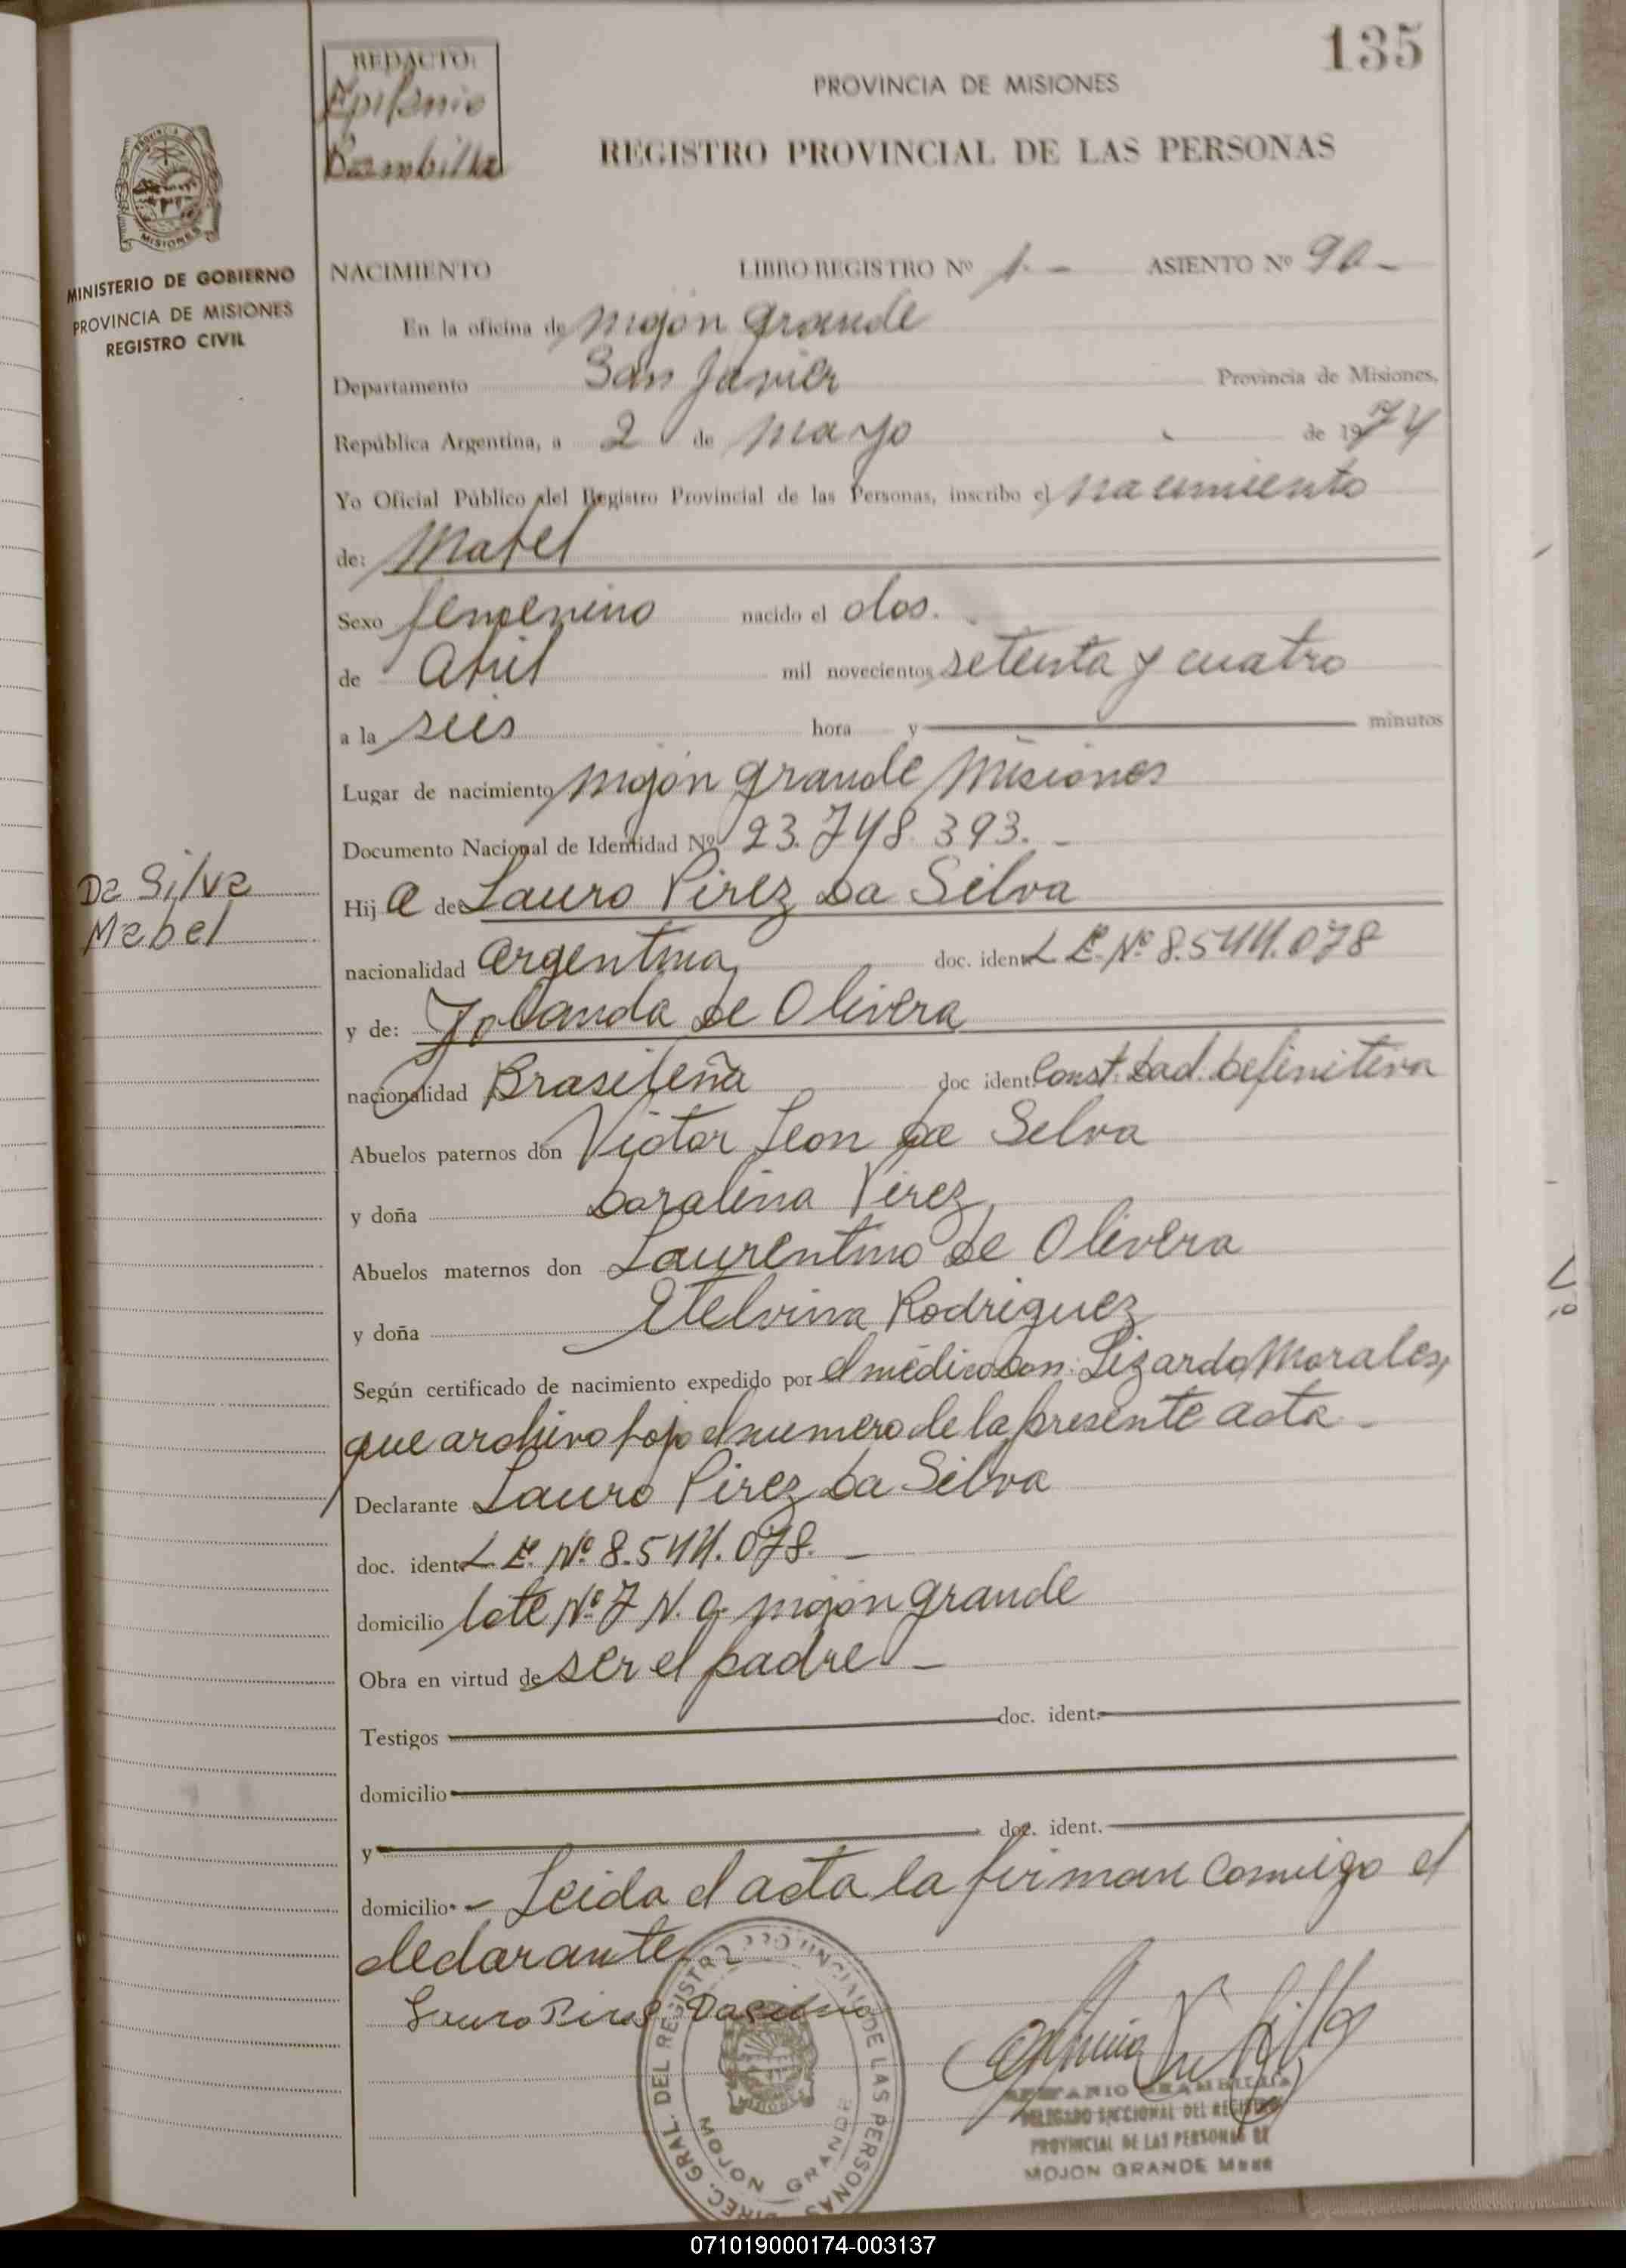 135
REDACTO:
Epifanio
PROVINCIA DE MISIONES
REGISTRO PROVINCIAL DE LAS PERSONAS
PROVINCIA
MISIONES
MINISTERIO DE GOBIERNO
PROVINCIA DE MISIONES
REGISTRO CIVIL
NACIMIENTO LIBRO REGISTRO Nº 1.- ASIENTO Nº 90-
En la oficina de Mojón Grande
Departamento San Javier Provincia de Misiones,
República Argentina, a 2 de Mayo de 1974
Yo Oficial Público del Registro Provincial de las Personas, inscribo el nacimiento
de: Mabel
Sexo femenino nacido el dos.
de Abril mil novecientos setenta y cuatro
a la seis hora y minutos
Lugar de nacimiento Mojón grande Misiones
Documento Nacional de Identidad Nº 23.748.393.-
Da Silva
Mabel
Hija de: Lauro Pirez Da Silva
nacionalidad Argentina doc. ident. L.E. Nº 8.544.078
y de: Yolanda De Olivera
nacionalidad Brasileña doc ident. Const. Rad. Definitiva
Abuelos paternos don Victor Leon Da Silva
y doña Doralina Pirez
Abuelos maternos don Laurentino De Olivera
y doña Etelvina Rodriguez
Según certificado de nacimiento expedido por el médico Don: Lizardo Morales,
que archivo bajo el numero de la presente acta.-
Declarante Lauro Pirez Da Silva
doc. ident. L.E. Nº 8.544.078.-
domicilio lote Nº 7 N. g. Mojón grande
Obra en virtud de ser el padre.-
Testigos doc. ident.
domicilio
y doc. ident.
domicilio - Leida el acta la firman conmigo el
declarante
Lauro Pires Dasilva
DIREC. GRAL. DEL REGISTRO PROVINCIAL DE LAS PERSONAS
MISIONES
MOJON GRANDE
DELEGADO SECCIONAL DEL REGISTRO
PROVINCIAL DE LAS PERSONAS DE
MOJON GRANDE Mnes
071019000174-003137